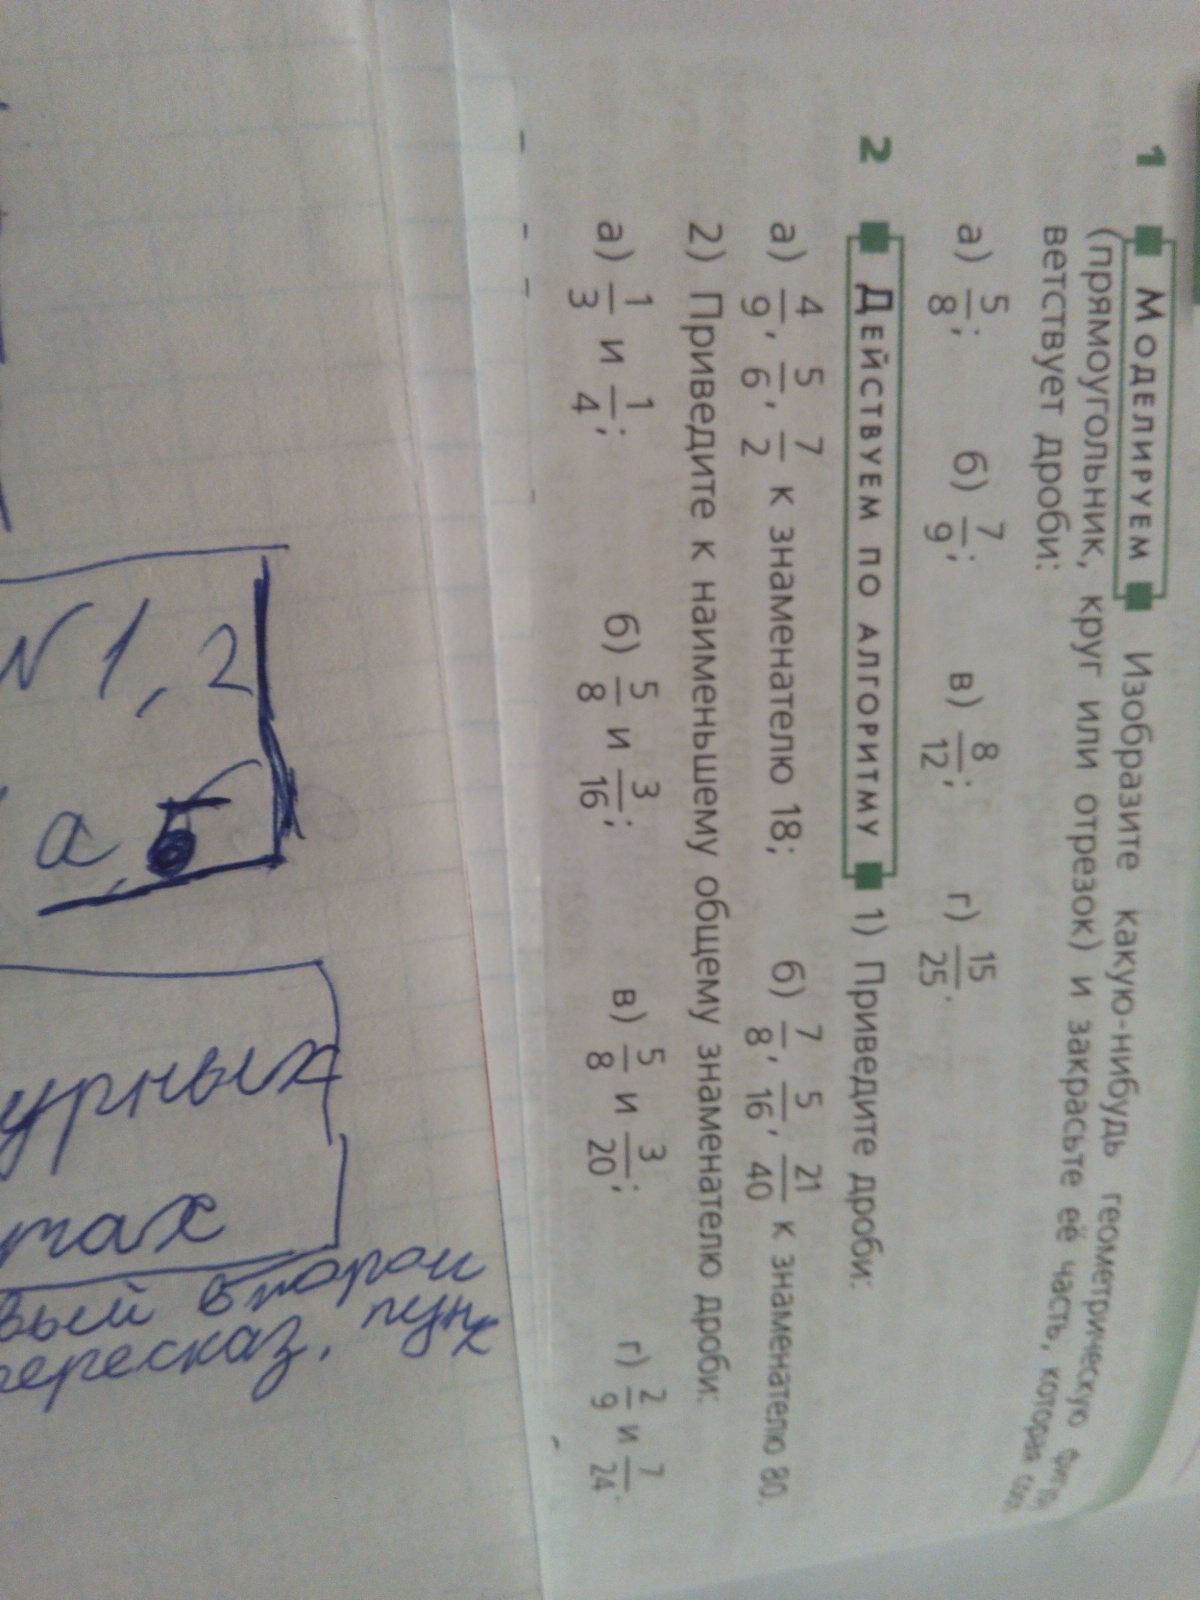 1 МОДЕЛИРУЕМ Изобразите какую-нибудь геометрическую
(прямоугольник, круг или отрезок) и закрасьте её часть, которая соот-
ветствует дроби:
а) 5/8; б) 7/9; в) 8/12; г) 15/25.
2 ДЕЙСТВУЕМ ПО АЛГОРИТМУ 1) Приведите дроби:
а) 4/9, 5/6, 7/2 к знаменателю 18; б) 7/8, 5/16, 21/40 к знаменателю 80.
2) Приведите к наименьшему общему знаменателю дроби:
а) 1/3 и 1/4; б) 5/8 и 3/16; в) 5/8 и 3/20; г) 2/9 и 7/24.
N 1, 2
а, б
урных
тах
вый второй
пересказ. пунк